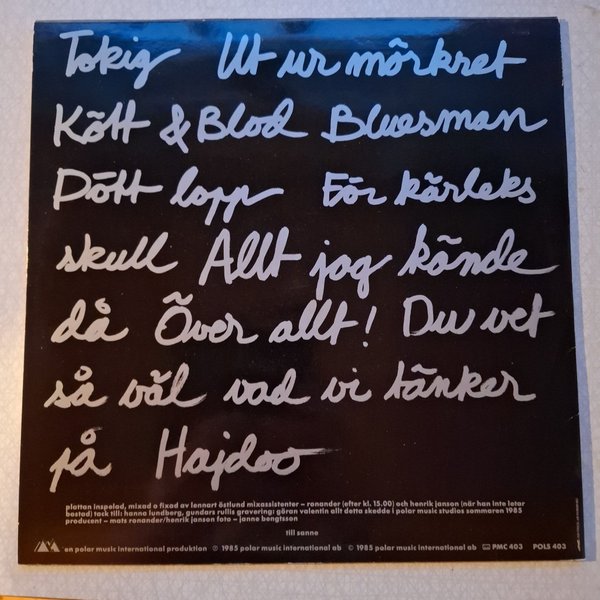 Tokig Ut ur mörkret
Kött & Blod Bluesman
Dött lopp För kärleks
skull Allt jag kände
då Över allt! Du vet
så väl vad vi tänker
på Hajdoo
plattan inspelad, mixad o fixad av lennart östlund mixassistenter – ronander (efter kl. 15.00) och henrik janson (när han inte letar
bostad) tack till: hanna lundberg, gundars rullis gravering: göran valentin allt detta skedde i polar music studios sommaren 1985
producent – mats ronander/henrik janson foto – janne bengtsson
till sanne
en polar music international produktion ℗ 1985 polar music international ab © 1985 polar music international ab PMC 403 POLS 403